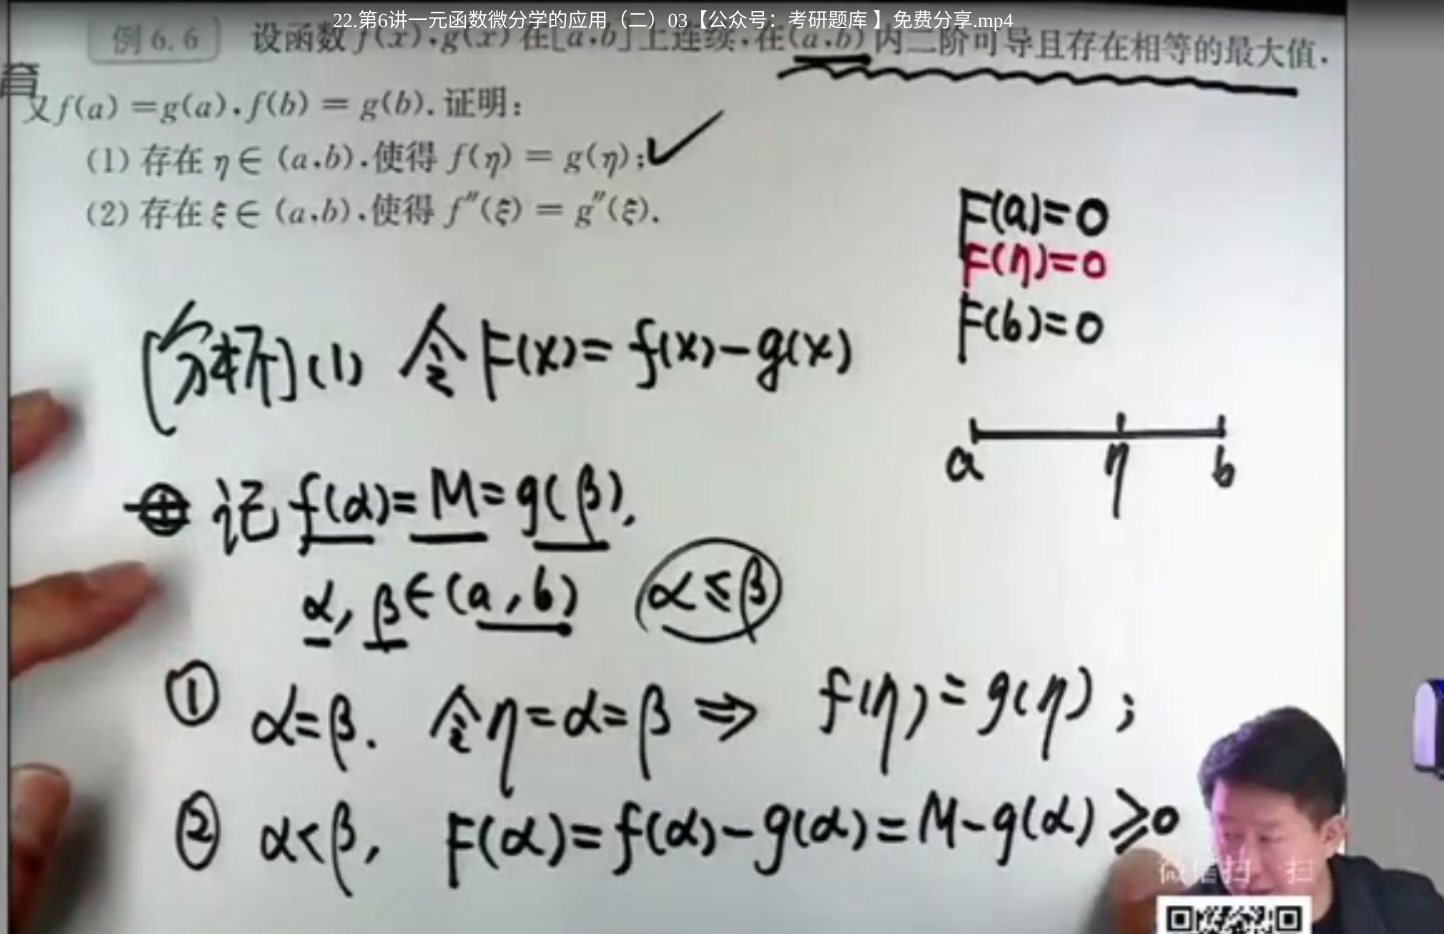 22.第6讲一元函数微分学的应用（二）03【公众号：考研题库 】免费分享.mp4
例 6.6 设函数 f(x),g(x) 在[a,b]上连续,在(a,b)内二阶可导且存在相等的最大值,
育
又 f(a)=g(a),f(b)=g(b).证明:
(1) 存在 η∈(a,b),使得 f(η)=g(η);
(2) 存在 ξ∈(a,b),使得 f″(ξ)=g″(ξ).
F(a)=0
F(η)=0
F(b)=0
[分析](1) 令 F(x)=f(x)-g(x)
a η b
记 f(α)=M=g(β).
α,β∈(a,b) α≤β
① α=β. 令η=α=β ⇒ f(η)=g(η);
② α<β, F(α)=f(α)-g(α)=M-g(α)≥0
微信扫一扫